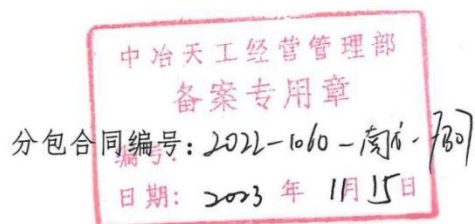 中冶天工经营管理部
备案专用章
分包合同编号：2022-1060-南方-
编号：
日期：2023年11月15日